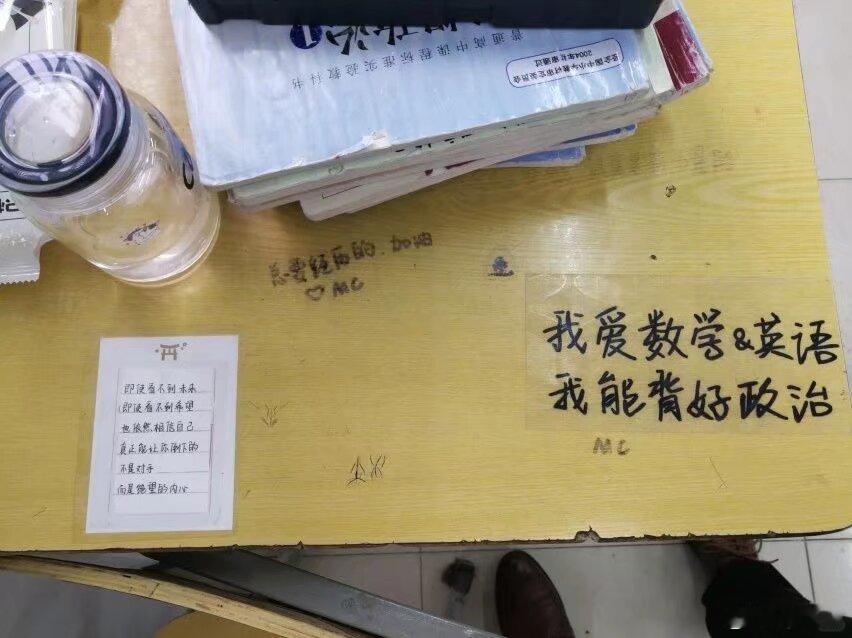 普通高中课程标准实验教科书
经全国中小学教材审定委员会
2004年初审通过
总要经历的.加油
♡MC
我爱数学&英语
我能背好政治
MC
即使看不到未来
即使看不到希望
也依然相信自己
真正能让你倒下的
不是对手
而是绝望的内心